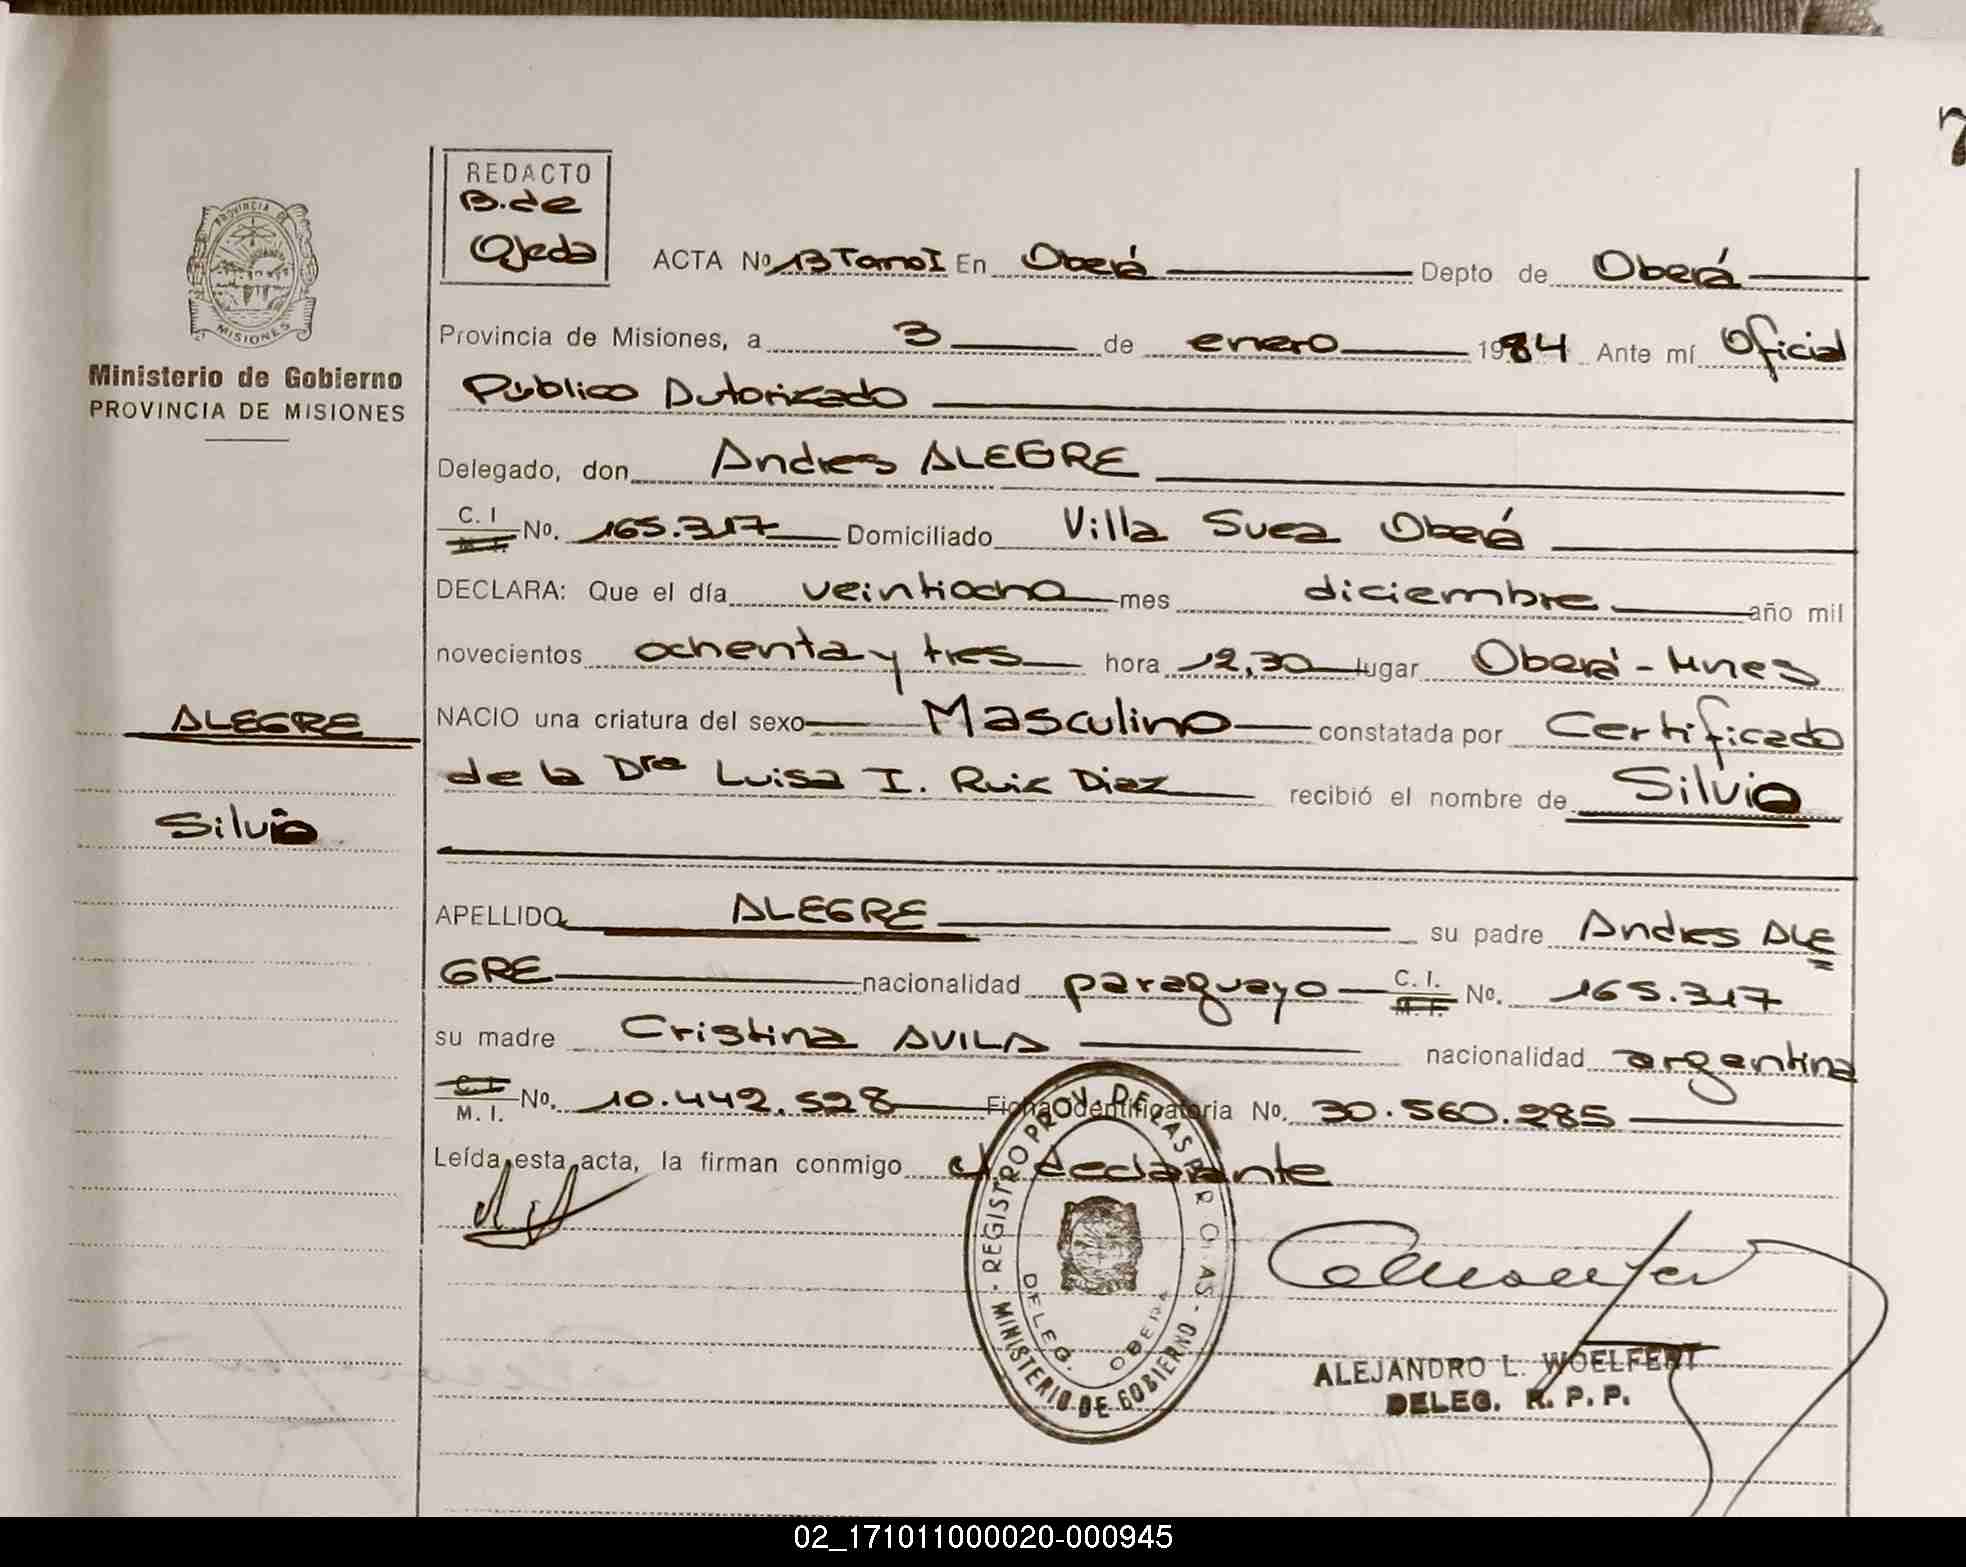 REDACTO
B. de
Ojeda
PROVINCIA DE
MISIONES
Ministerio de Gobierno
PROVINCIA DE MISIONES
ACTA Nº 13 Tomo I En Oberá Depto de Oberá
Provincia de Misiones, a 3 de enero 1984 Ante mí Oficial
Público Autorizado
Delegado, don Andres ALEGRE
C. I M. I. No. 165.317 Domiciliado Villa Suez Oberá
DECLARA: Que el día veintiocho mes diciembre año mil
novecientos ochenta y tres hora 12,30 lugar Oberá - Mnes
ALEGRE
NACIO una criatura del sexo Masculino constatada por Certificado
de la Dra Luisa I. Ruiz Diaz recibió el nombre de Silvio
Silvio
APELLIDO ALEGRE su padre Andres ALE
GRE nacionalidad paraguayo C. I. M. I. No. 165.317
su madre Cristina AVILA nacionalidad argentina
C. I. M. I. No. 10.442.528 Ficha Identificatoria No. 30.560.285
Leída esta acta, la firman conmigo el declarante
REGISTRO PROV. DE LAS PERSONAS
MINISTERIO DE GOBIERNO
DELEG. OBERA
ALEJANDRO L. WOELFERT
DELEG. R. P. P.
02_171011000020-000945